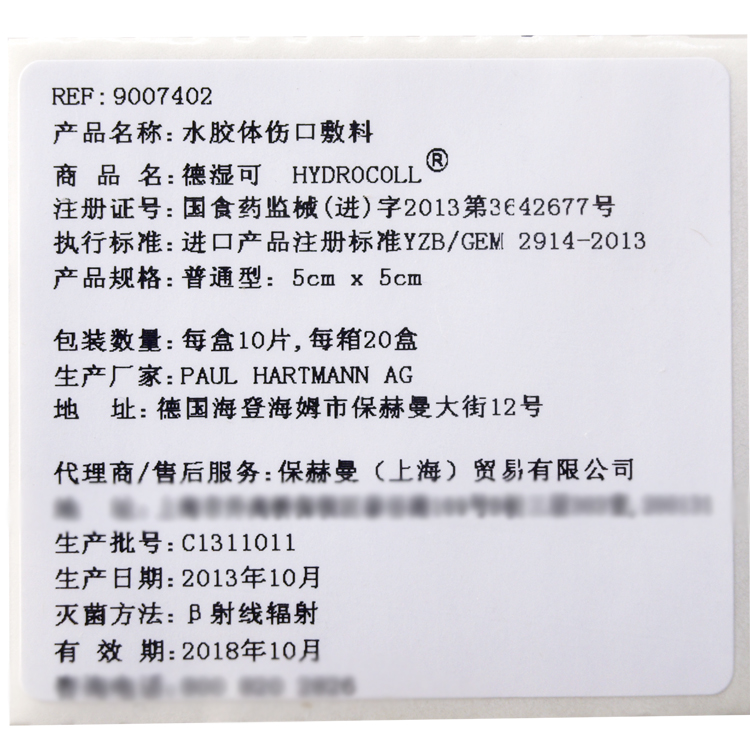 REF:9007402
产品名称:水胶体伤口敷料
商 品 名:德湿可 HYDROCOLL®
注册证号:国食药监械(进)字2013第3642677号
执行标准:进口产品注册标准YZB/GEM 2914-2013
产品规格:普通型: 5cm x 5cm
包装数量:每盒10片,每箱20盒
生产厂家:PAUL HARTMANN AG
地 址:德国海登海姆市保赫曼大街12号
代理商/售后服务:保赫曼（上海）贸易有限公司
生产批号:C1311011
生产日期:2013年10月
灭菌方法:β射线辐射
有 效 期:2018年10月